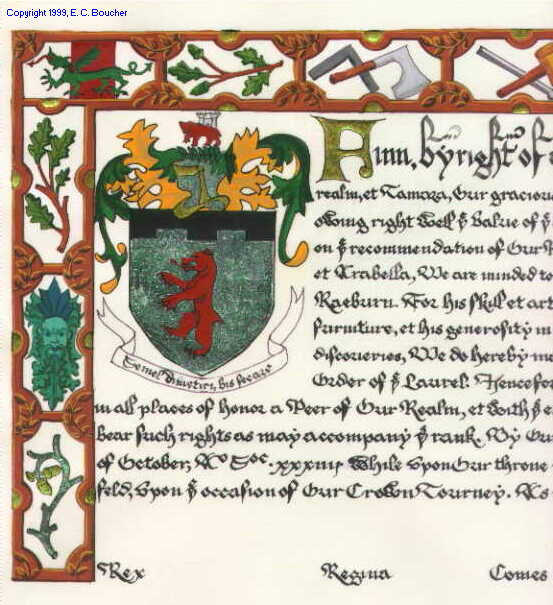 Copyright 1999, E. C. Boucher
Finn, by right of
realm, et Tamara, Our graciou
owing right well yͤ value of yͤ
on yͤ recommendation of Our R
et Arabella, We are minded to
Raeburn. For his skill et art
furniture, et his generosity in
discoveries, We do hereby m
Order of yͤ Laurel. Hencefor
Semel dimetiri, bis secare
in all places of honor a Peer of Our Realm, et with yͤ e
bear such rights as may accompany yͤ rank. By Ou
of October, Aº Soc. xxxiij While upon Our throne
feld, upon yͤ occasion of Our Crown Tourney. As
Rex Regina Comes